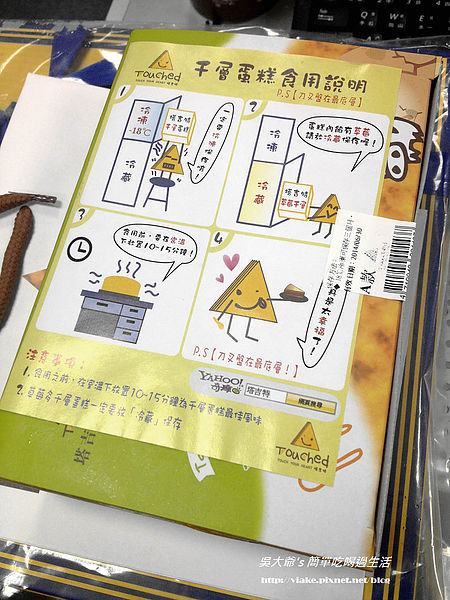 Touched
TOUCH YOUR HEART 塔吉特
千層蛋糕食用說明
P.S【刀叉盤在最底層】
1
冷凍
-18℃
冷藏
塔吉特
千層蛋糕
2
冷凍
冷藏
塔吉特
草莓千層
蛋糕內餡有草莓
請於冷藏保存喔!
3
食用前,要在室溫
下放置10~15分鐘!
4
真是太幸福了!
P.S【刀叉盤在最底層!】
有效日期:2014/06/30
A款
注意事項:
1. 食用之前,在室溫下放置10~15分鐘為千層蛋糕最佳風味
2. 草莓多千層蛋糕一定要放「冷藏」保存
YAHOO!
奇摩
塔吉特
網頁搜尋
Touched
TOUCH YOUR HEART 塔吉特
塔吉
吳大爺's 簡單吃喝過生活
http://viake.pixnet.net/blog